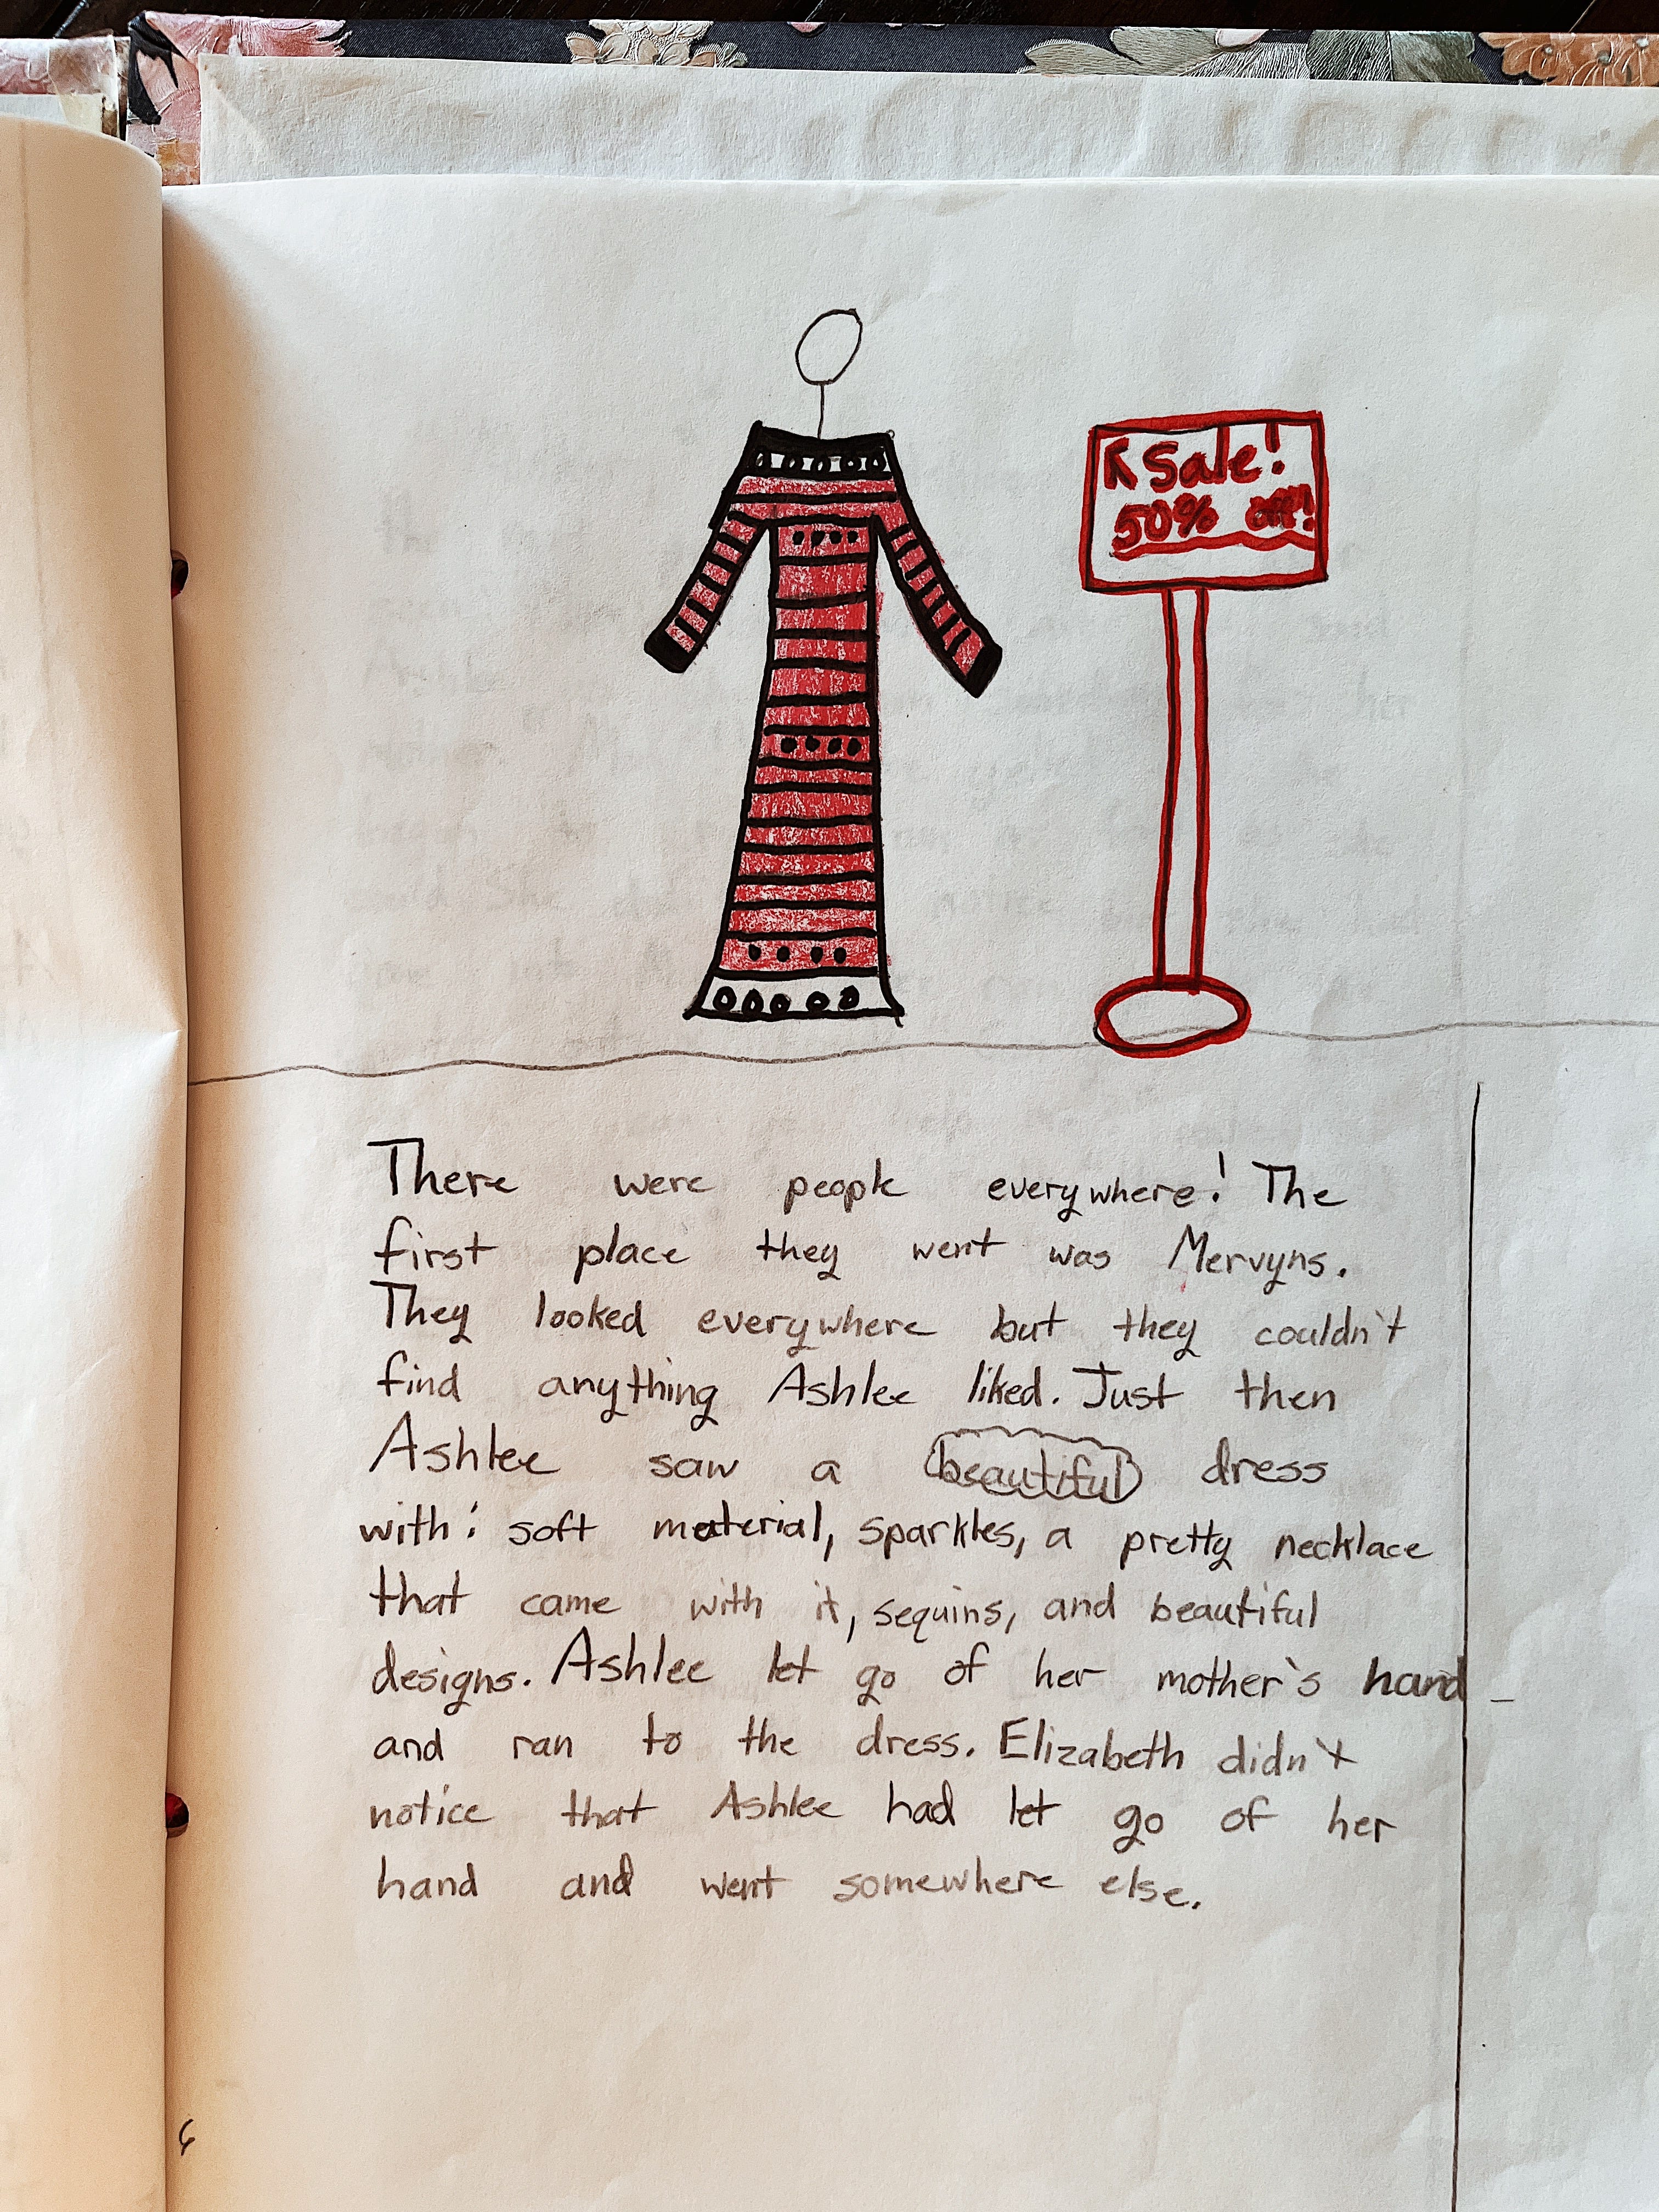 Sale!
50% off!
There were people everywhere! The
first place they went was Mervyns.
They looked everywhere but they couldn't
find anything Ashlee liked. Just then
Ashlee saw a beautiful dress
with: soft material, sparkles, a pretty necklace
that came with it, sequins, and beautiful
designs. Ashlee let go of her mother's hand
and ran to the dress. Elizabeth didn't
notice that Ashlee had let go of her
hand and went somewhere else.